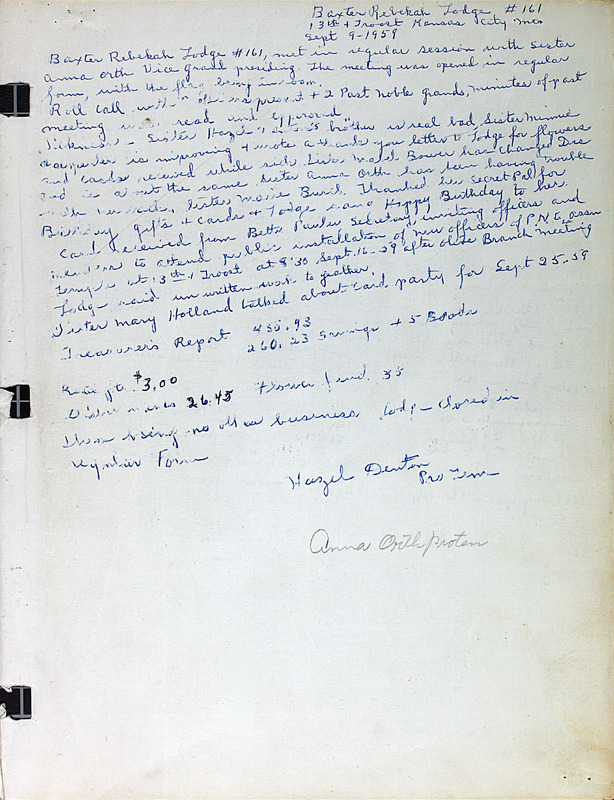 Baxter Rebekah Lodge #161
13th + Troost Kansas City Mo
Sept 9-1959
Baxter Rebekah Lodge #161, met in regular session with Sister
Anna Orth Vice grand presiding. The meeting was opened in regular
form, with the flag being in room.
Roll call with officers present + 2 Past Noble grands, minutes of past
meeting was read and approved
Sickness - Sister Hazel brother is real bad Sister Minnie
is improving + wrote a thank you letter to Lodge for flowers
and cards received while sick Sister Mabel Bower has changed Drs
and is about the same Sister Anna Orth has been having trouble
with her back, Sister Marie Buril. Thanked her Secret Pal for
Birthday gifts + cards + Lodge sang Happy Birthday to her.
Card received from Betty Secretary, inviting officers and
members to attend public installation of new officers of P.N.G. assn
Temple at 13th + Troost at 8:30 Sept. 16-59 after Olive Branch meeting
Lodge said unwritten work to geather.
Sister Mary Holland talked about card party for Sept 25-59
Treasurer's Report 455.93
260.23 Savings + 5 Bonds
$3.00
26.45 Flower fund. 35
There being no other business Lodge closed in
regular Form
Hazel Denton
Pro Tem
Anna Orth protem